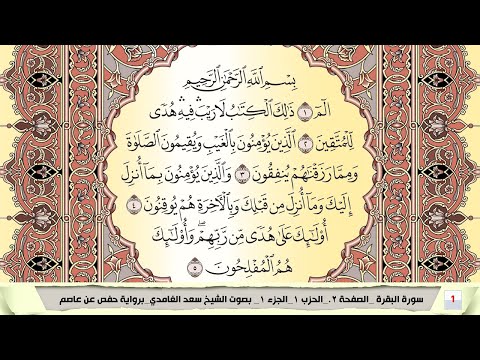 بِسْمِ اللَّهِ الرَّحْمَٰنِ الرَّحِيمِ
الٓمٓ ١ ذَٰلِكَ الْكِتَٰبُ لَا رَيْبَ ۛ فِيهِ ۛ هُدًى
لِّلْمُتَّقِينَ ٢ الَّذِينَ يُؤْمِنُونَ بِالْغَيْبِ وَيُقِيمُونَ الصَّلَوٰةَ
وَمِمَّا رَزَقْنَٰهُمْ يُنفِقُونَ ٣ وَالَّذِينَ يُؤْمِنُونَ بِمَآ أُنزِلَ
إِلَيْكَ وَمَآ أُنزِلَ مِن قَبْلِكَ وَبِالْءَاخِرَةِ هُمْ يُوقِنُونَ ٤
أُو۟لَٰٓئِكَ عَلَىٰ هُدًى مِّن رَّبِّهِمْ ۖ وَأُو۟لَٰٓئِكَ
هُمُ الْمُفْلِحُونَ ٥
1 سورة البقرة _الصفحة ٢._ الحزب ١_الجزء ١_ بصوت الشيخ سعد الغامدي_برواية حفص عن عاصم